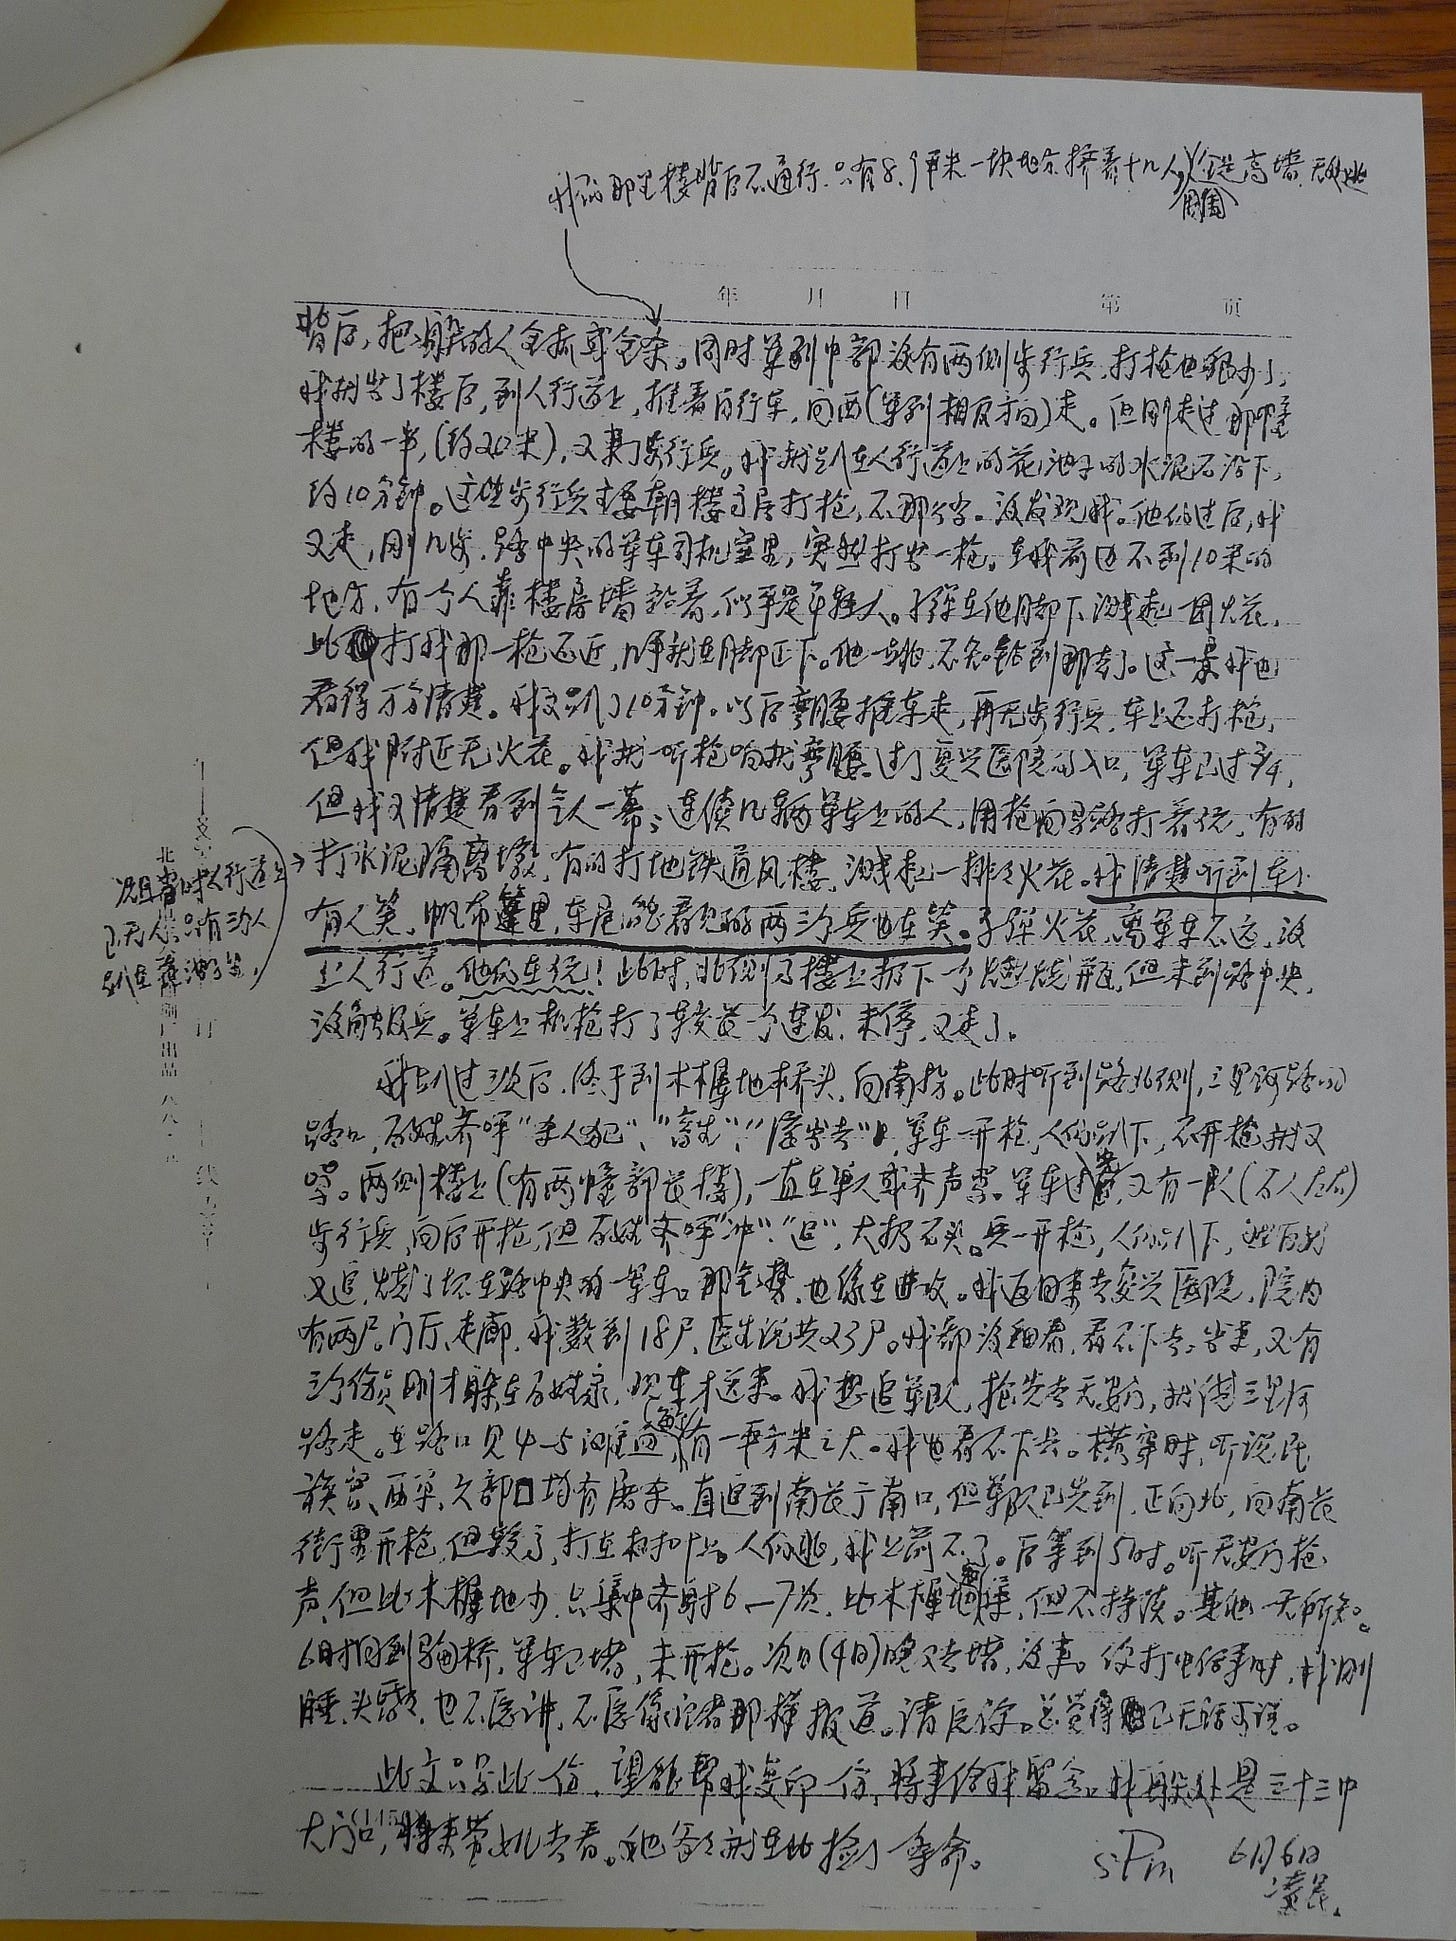 我们那里楼背后不通行，只有8、9平米一块地方挤着十几人，周围全是高墙，无处逃
年 月 日 第 页
背后，把躲的人全抓或全杀。同时军列中部没有两侧步行兵，打枪也很少了，
我就出了楼后，到人行道上，推着自行车，向西（军列相反方向）走。但刚走过那幢
楼的一半，（约20米），又来了步行兵。我就趴在人行道上的花池子的水泥石沿下，
约10分钟。这些步行兵主要朝楼房打枪，没发现我。他们过后，我
又走，刚几步，路中央的军车司机室里，突然打出一枪。在我前边不到10米的
地方，有个人靠楼房墙站着，似乎是年轻人。子弹在他脚下溅起一团火花，
比打我那一枪还近，几乎就在脚正下。他一跳，不知钻到那去了。这一景我也
看得万分清楚。我又趴了10分钟。以后弯腰推车走，再无步行兵，车上还打枪，
但我附近无火花。我就一听枪响就弯腰。过了复兴医院的入口，军车已过3/4，
但我又清楚看到令人一幕：连续几辆军车上的人，用枪向马路打着玩，有的
打水泥隔离墩，有的打地铁通风楼，溅起一排排火花。我清楚听到车上
有人笑，帆布篷里，车尾能看见的两三个兵也在笑。子弹火花，离军车不远，没
上人行道。他们在玩！此时，北侧楼上扔下一个燃烧瓶，但未到路中央，
没触及兵。军车上机枪打了较长一个连发，未停，又走了。
况且当时人行道上
已无人，只有三个人
趴在花池子旁，
北 刷厂出品 八八·
订 线
我趴过三次后，终于到木樨地桥头，向南拐。此时听到路北侧，三里河路的
路口，百姓齐呼“杀人犯”、“畜生”、“屠宰者”，军车一开枪，人们趴下，不开枪就又
骂。两侧楼上（有两幢部长楼），一直在单人或齐声骂。军车过完，又有一队（百人左右）
步行兵，向后开枪，但百姓齐呼“冲”、“追”，大扔石头。兵一开枪，人们趴下，过后就
又追，烧了坏在路中央的一军车。那气势，也像在进攻。我返回来去复兴医院，院内
有两尸，门厅、走廊，我数到18尸，医生说共23尸。我都没细看，看不下去。出来，又有
三个伤员刚才躲在百姓家，现在才送来。我想追军队，抢先去天安门，就借三里河
路走。在路口见4—5滩血，有一平方米之大。我也看不下去。横穿时，听说民
族宫、西单、六部口均有屠杀。直追到南长街南口，但军队已先到，正向北，向南长
街里开枪，但较高，打在树叶上。人们逃，我上前不了。后等到5时。听天安门枪
声，但比木樨地少，只集中齐射6—7次，比木樨地密集，但不持续。其他一无所知。
6时拐回到 桥，军车已堵，未开枪。次日（4日）晚又去堵，没来。你打电话来时，我刚
睡，头昏，也不愿讲，不愿像记者那样报道。请原谅。总觉得已无话可说。
此文只写此一份，望能帮我复印一份，将来给我留念。我躲处是三十三中
大门口，将来带她去看。她爸爸就在此捡了条命。
5Pm 6月6日
凌晨。